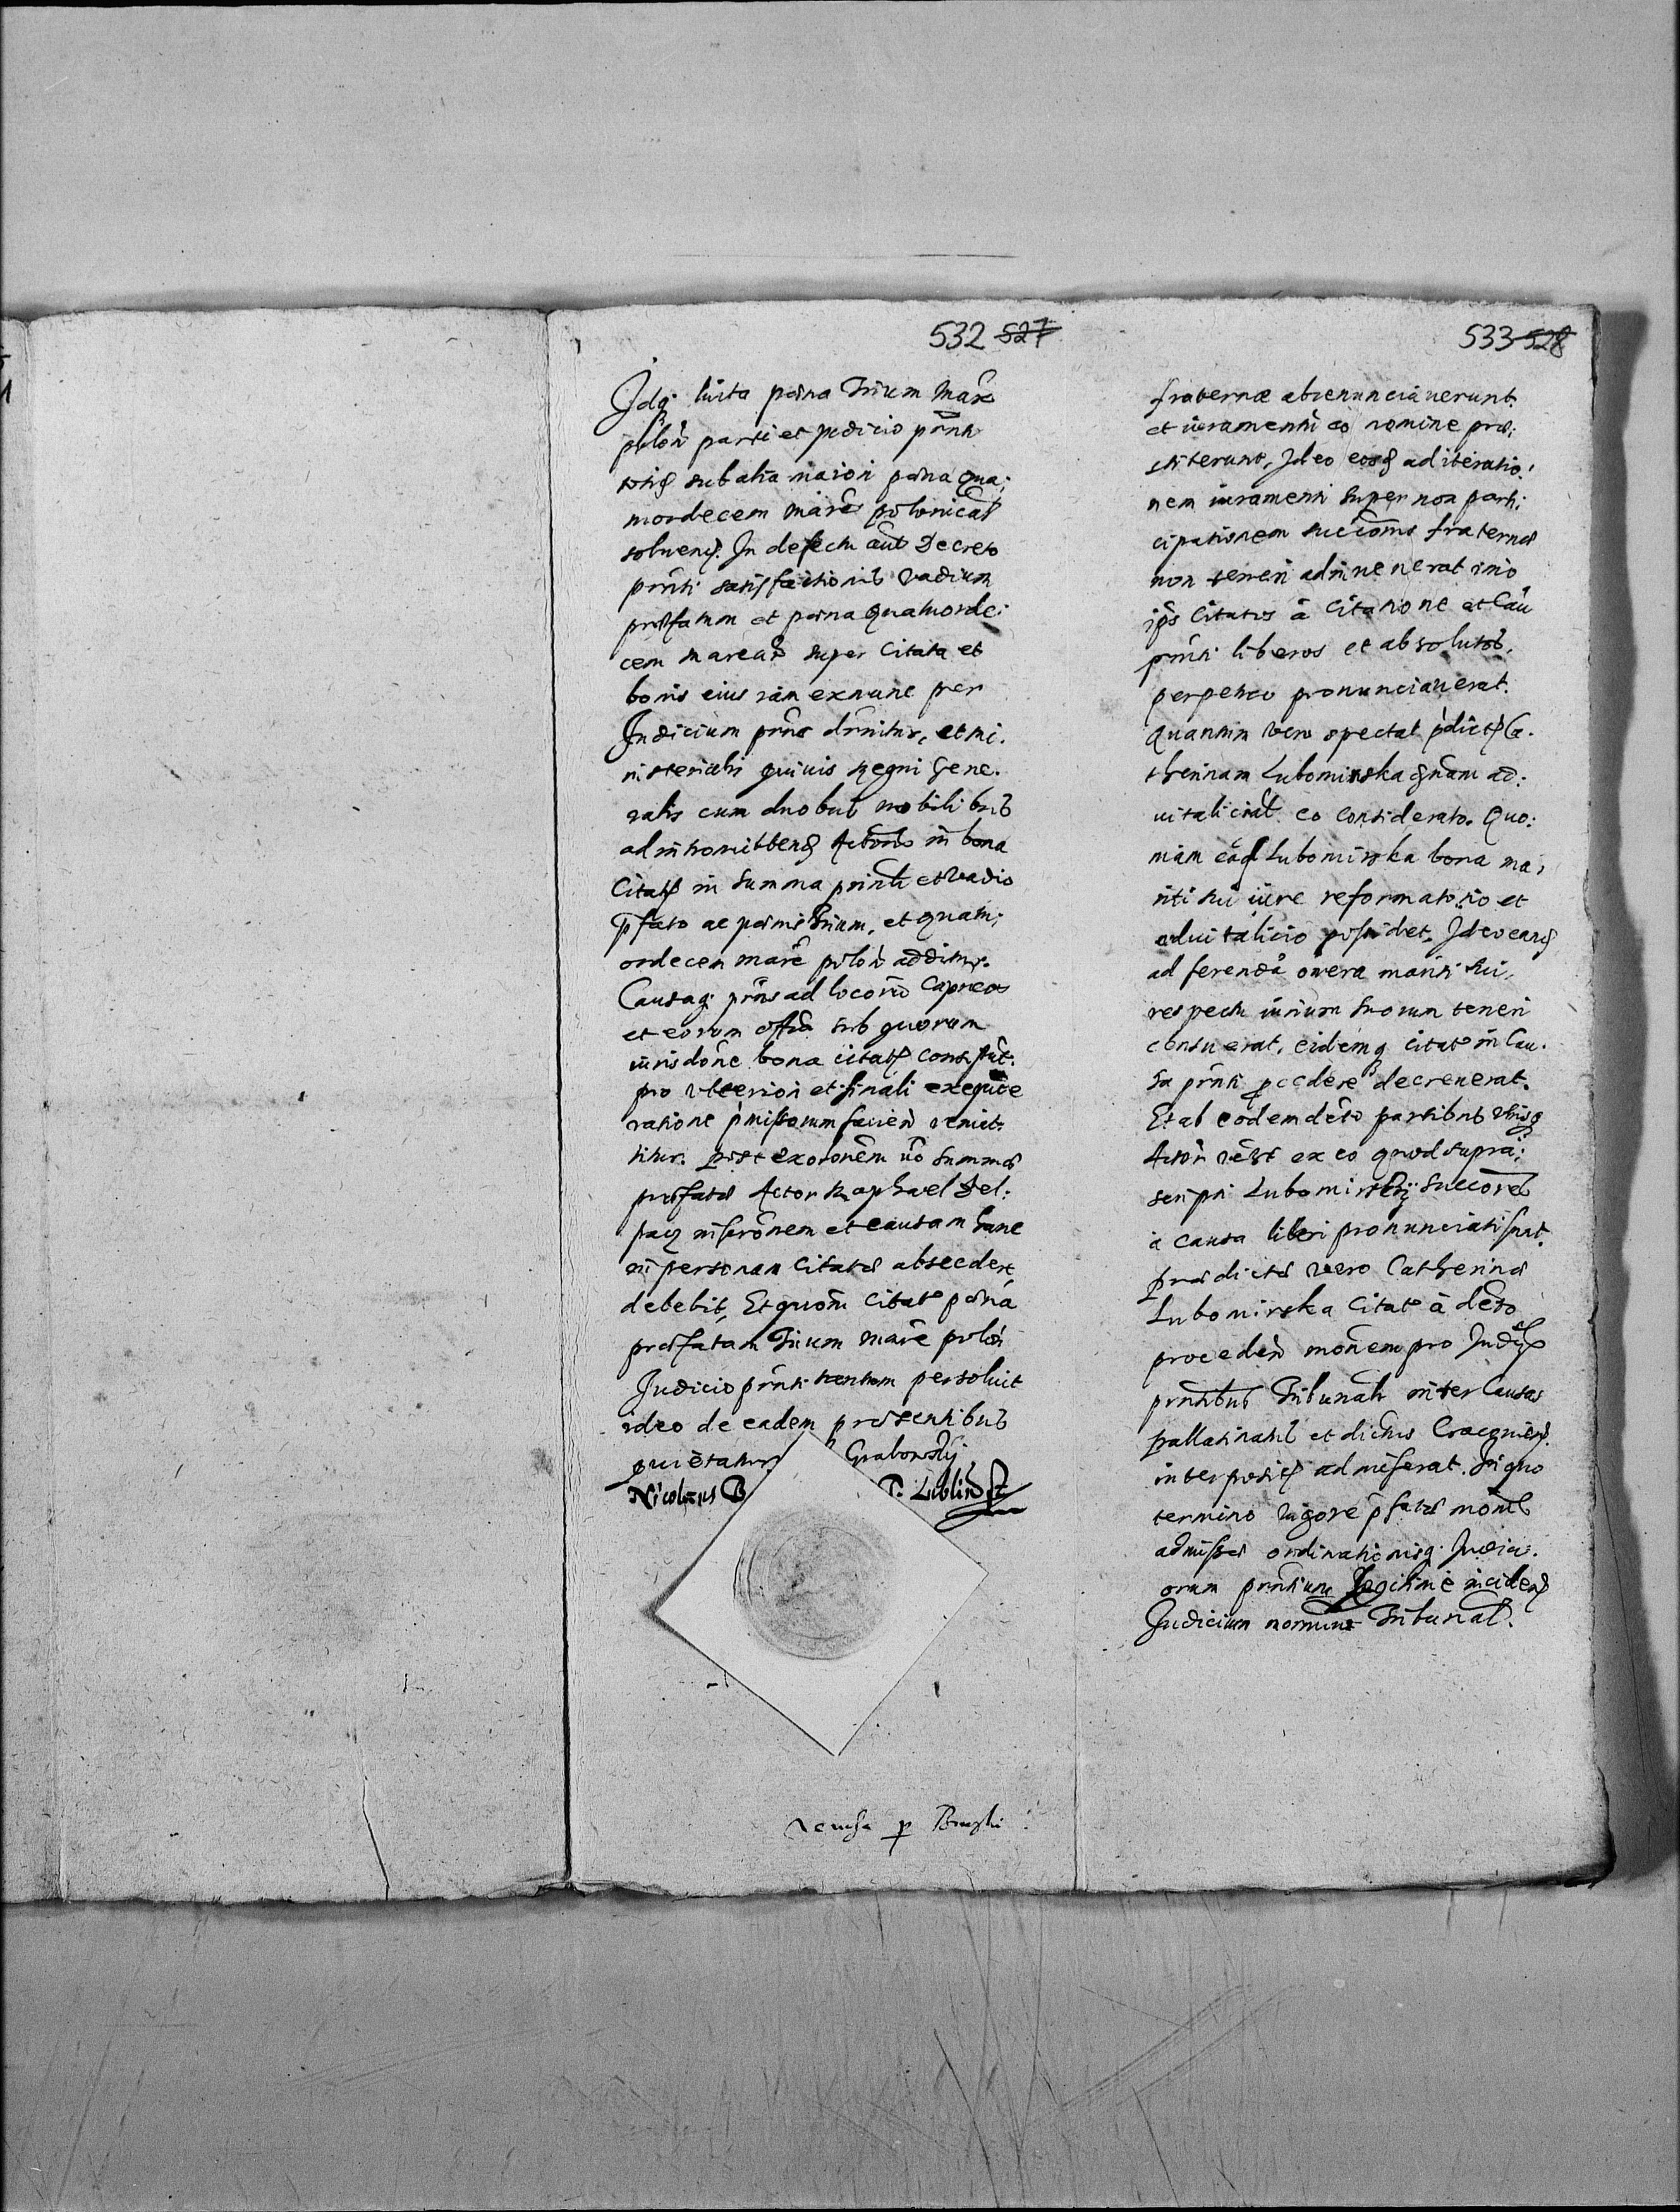 532 527
Idq luita poena trium Marc
polon parti et judicio pnti
totis sub alia maiori poena qua:
mordecem marc polonicas
solvens. In defectu aut Decreto
pnti satisfactionis vadium
praefatum et poena quatuorde:
cem marcas super Citata et
bonis eius iam exnunc per
Judicium pns drnitur, et mi:
nisterialis quivis Regni Gene:
ralis cum duobus nobilibus
ad intromittens Actores in bona
Citatae in summa pnti et vadio
pfato ac poenis trium, et quatu:
ordecem marc polon additur.
Causaq. pns ad locorum Capneos
et eorum offia sub quorum
iurisdone bona citatae consistut.
pro ulteriori et finali exequtoe
ratione pmissorum facien remit:
titur. post exolonem vo summae
praefatae Actor Raphael Del:
pacy inscronem et causam hanc
in personam Citatae abscedere
debebit, Et quom Citata poena
praefatam trium marc polon
Judicio pnti tentum persoluit
ideo de eadem praesentibus
quietatur Grabowsky
Nicolaus B P. Lublin
533 528
fraternae abrenunciaverunt.
et iuramenti eo nomine prae:
stiterunt, Ideo eosq ad iteratio:
nem iuramenti super non parti:
cipationem succoms fraternae
non teneri adinvenerat imo
ips Citatos à Citatione et Cau
pnti liberos et absolutos,
perpetuo pronunciaverat.
Quantum vero spectat pdictae Ca:
therinam Lubomirska qnam ad:
vitalicial eo considerato. Quo:
niam eaq Lubomirska bona ma:
riti sui iure reformatorio et
advitalicio possidet, Ideo eanq
ad ferenda onera mariti sui,
respectu iurium suorum teneri
censuerat, eidemq citatae in Cau:
sa pnti pcedere decreverat.
Et ab eodem deto partibus
Actori rest ex eo quod supra:
scripti Lubomirsky Succores
à causa liberi pronunciati sunt.
praedictae vero Catherinae
Lubomirska Citatae à deto
proceden monem pro Judys
pntibus Tribunalis inter Causas
pallatinatus et dictus Cracovien.
interpositam admiserat. In quo
termino vigore pfatae monis
admissae ordinationisq. Judici:
orum pntium legitime inciden
Judicium nomine Tribunal.